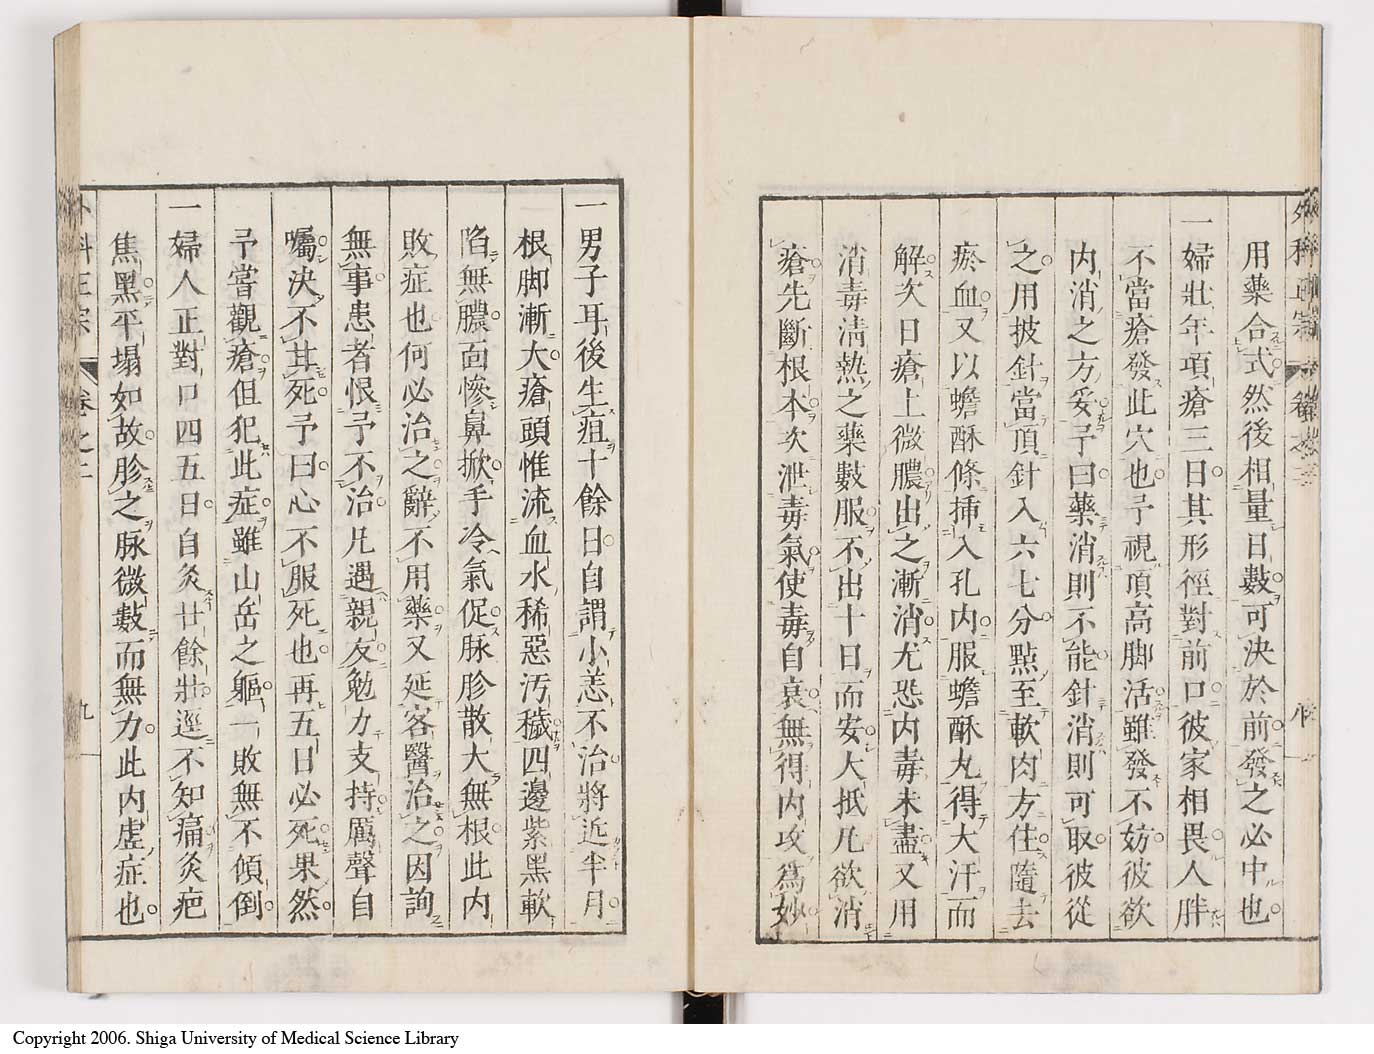 用藥合式然後相量日數可決於前發之必中也
一婦壯年項瘡三日其形徑對前口彼家相畏人胖
不當瘡發此穴也予視項高脚活雖發不妨彼欲
内消之方妥予曰藥消則不能針消則可取彼從
之用披針當頂針入六七分點至軟肉方住隨去
瘀血又以蟾酥條挿入孔内服蟾酥丸得大汗而
解次日瘡上微膿出之漸消尤恐内毒未盡又用
消毒淸熱之藥數服不出十日而安大抵凡欲消
瘡先斷根本次泄毒氣使毒自衰無得内攻爲妙
一男子耳後生疽十餘日自謂小恙不治將近半月
根脚漸大瘡頭惟流血水稀惡汚穢四邊紫黑軟
陷無膿面慘鼻掀手冷氣促脉胗散大無根此内
敗症也何必治之辭不用藥又延客醫治之因詢
無事患者恨予不治凡遇親友勉力支持厲聲自
囑決不其死予曰心不服死也再五日必死果然
予嘗觀瘡但犯此症雖山岳之軀一敗無不傾倒
一婦人正對口四五日自灸廿餘壯逕不知痛灸疤
焦黑平塌如故胗之脉微數而無力此内虚症也
外科正宗 卷之二
九
Copyright 2006. Shiga University of Medical Science Library